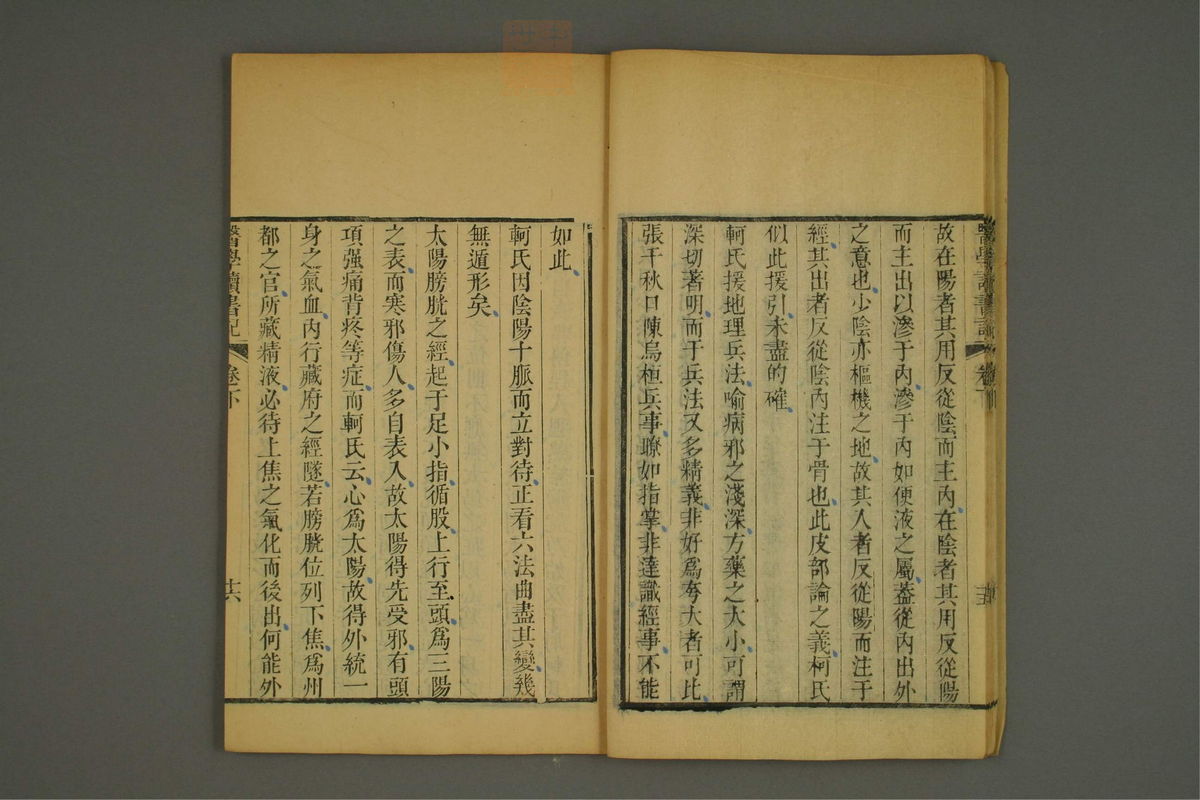 故在陽者其用反從陰而主內在陰者其用反從陽
而主出以滲于內滲于內如便液之屬葢從內出外
之意也少陰亦樞機之地故其入者反從陽而注于
經其出者反從陰內注于骨也此皮部論之義柯氏
似此援引未盡的確
軻氏援地理兵法喻病邪之淺深方藥之大小可謂
深切著明而于兵法又多精義非好爲夸大者可比
張千秋口陳烏桓兵事瞭如指掌非達識經事不能
如此
軻氏因陰陽十脈而立對待正看六法曲盡其變幾
無遁形矣
太陽膀胱之經起于足小指循股上行至頭爲三陽
之表而寒邪傷人多自表入故太陽得先受邪有頭
項强痛背疼等症而軻氏云心爲太陽故得外統一
身之氣血內行藏府之經隧若膀胱位列下焦爲州
都之官所藏精液必待上焦之氣化而後出何能外
醫學讀書記
卷下
十六